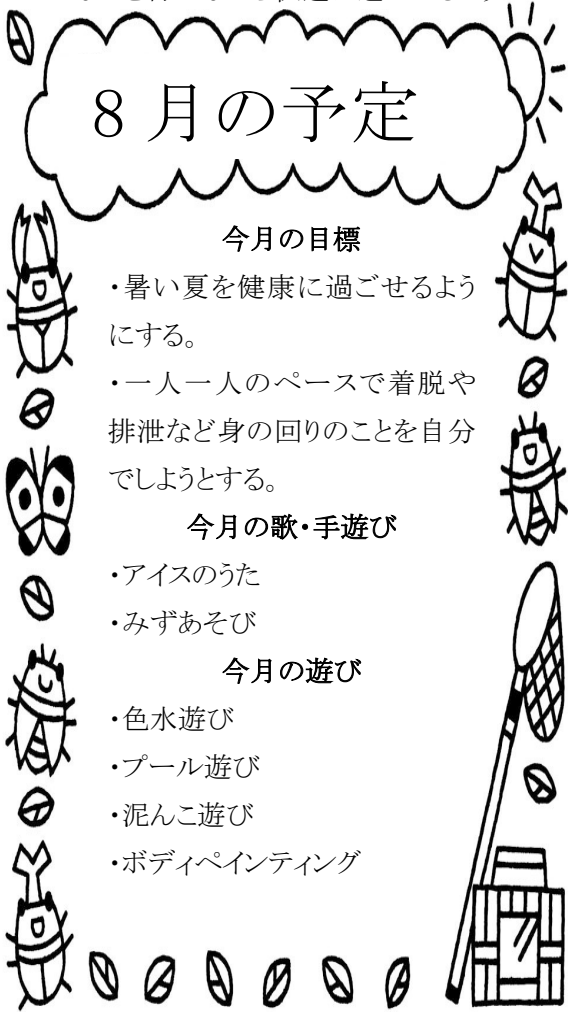 8月の予定
今月の目標
・暑い夏を健康に過ごせるよう
にする。
・一人一人のペースで着脱や
排泄など身の回りのことを自分
でしようとする。
今月の歌・手遊び
・アイスのうた
・みずあそび
今月の遊び
・色水遊び
・プール遊び
・泥んこ遊び
・ボディペインティング